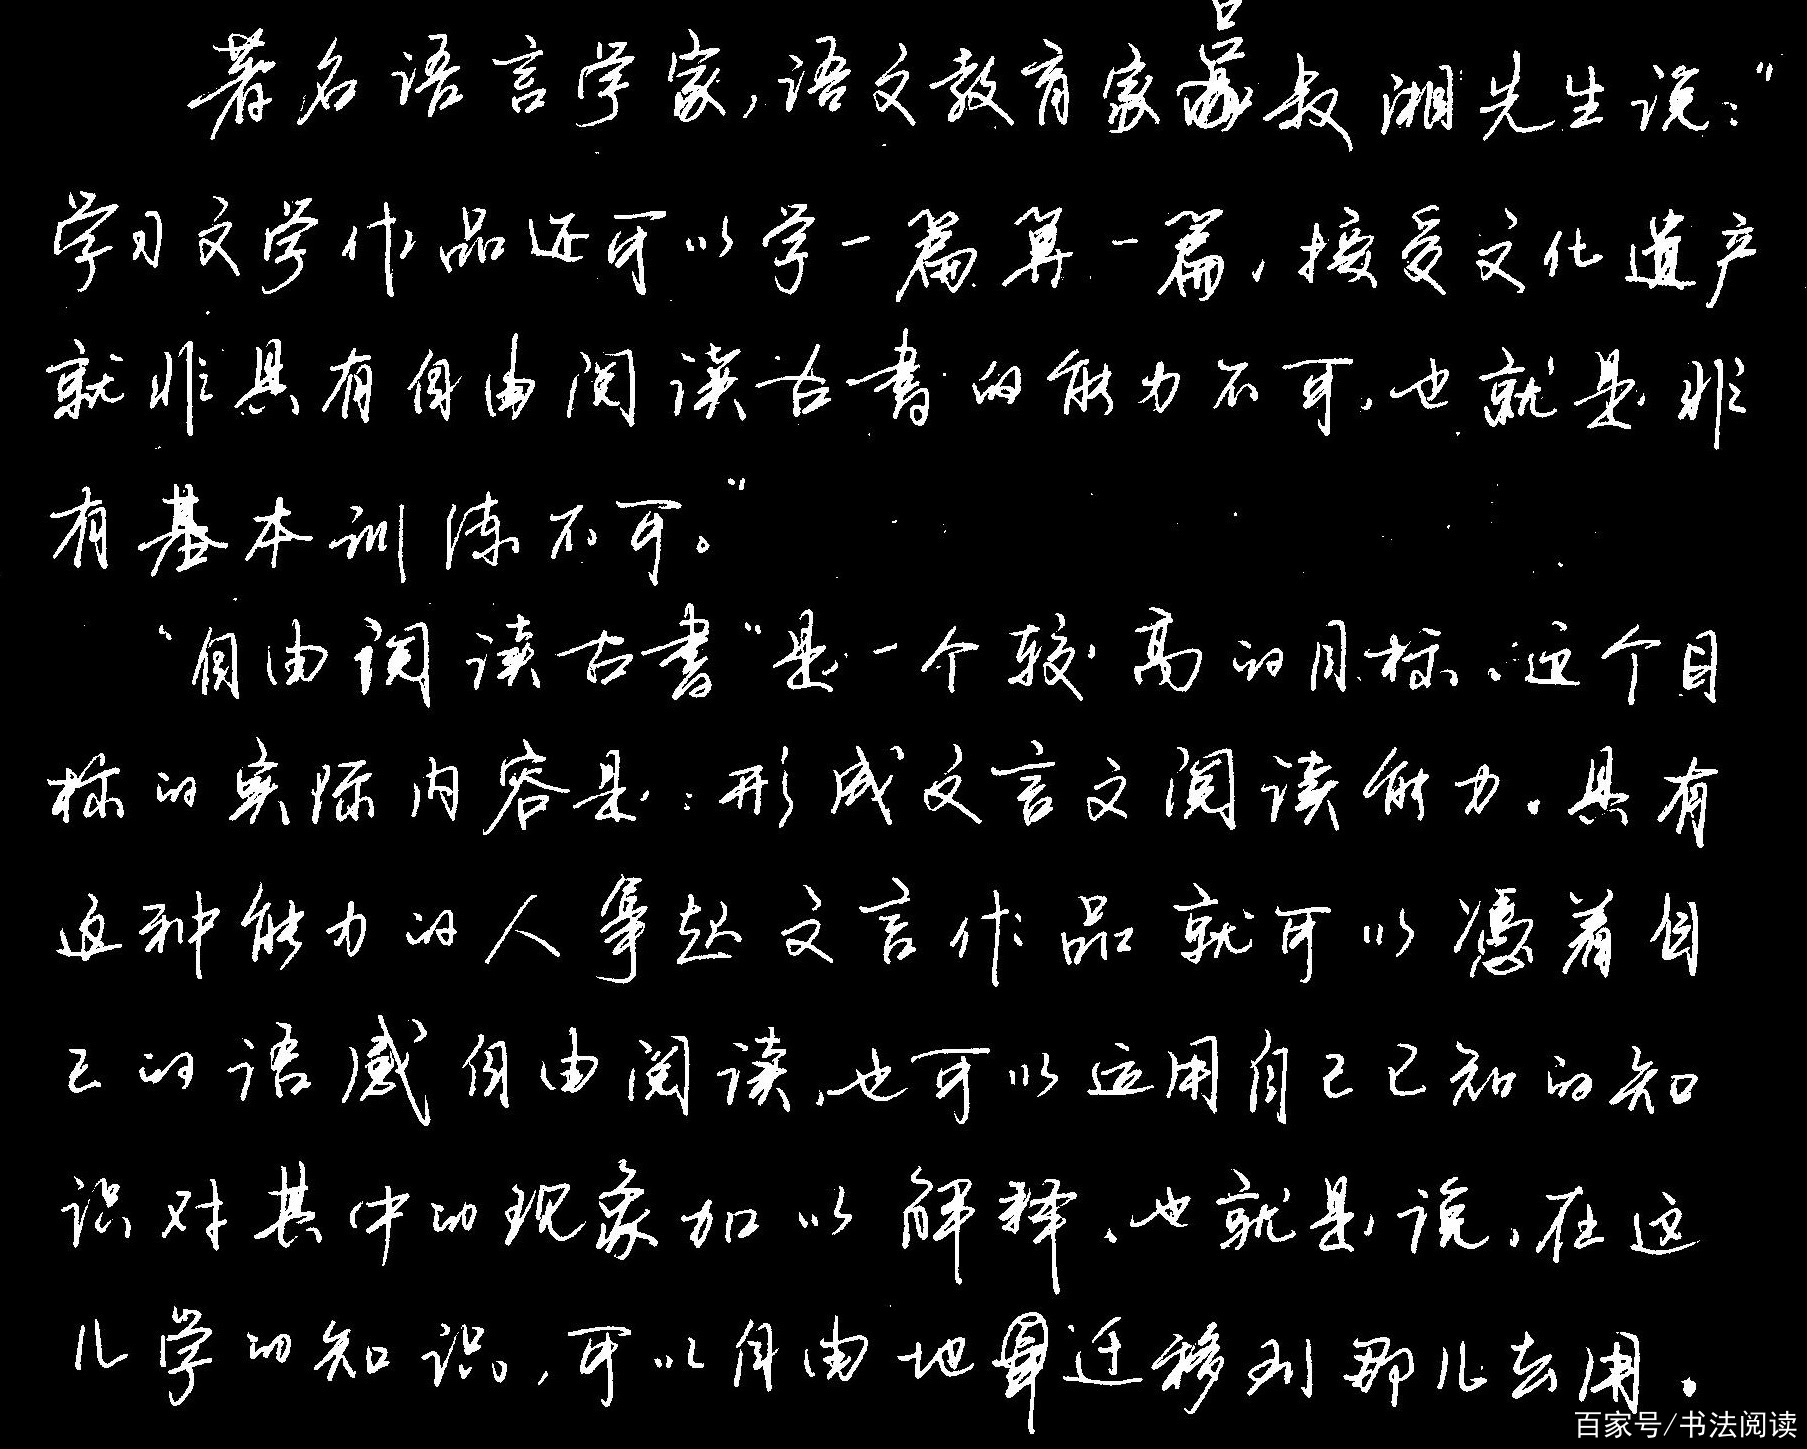 著名语言学家,语文教育家吕叔湘先生说:"
学习文学作品还可以学一篇算一篇,接受文化遗产
就非具有自由阅读古书的能力不可,也就是非
有基本训练不可。"
"自由阅读古书"是一个较高的目标。这个目
标的实际内容是:形成文言文阅读能力。具有
这种能力的人拿起文言作品就可以凭着自
己的语感自由阅读,也可以运用自己已知的知
识对其中的现象加以解释。也就是说,在这
儿学的知识,可以自由地迁移到那儿去用。
百家号/书法阅读